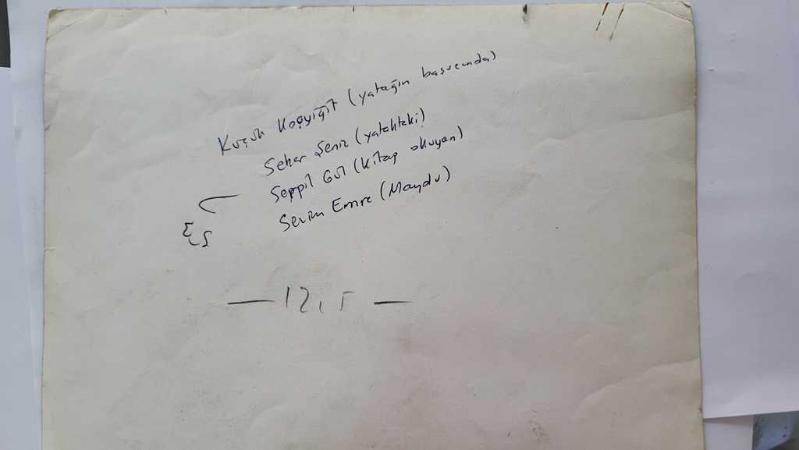 Küçük Koçyiğit (yatağın başucunda)
Seher Şeniz (yataktaki)
Seppil Gül (kitap okuyan)
Sevim Emre (Maydu)
— 12,5 —